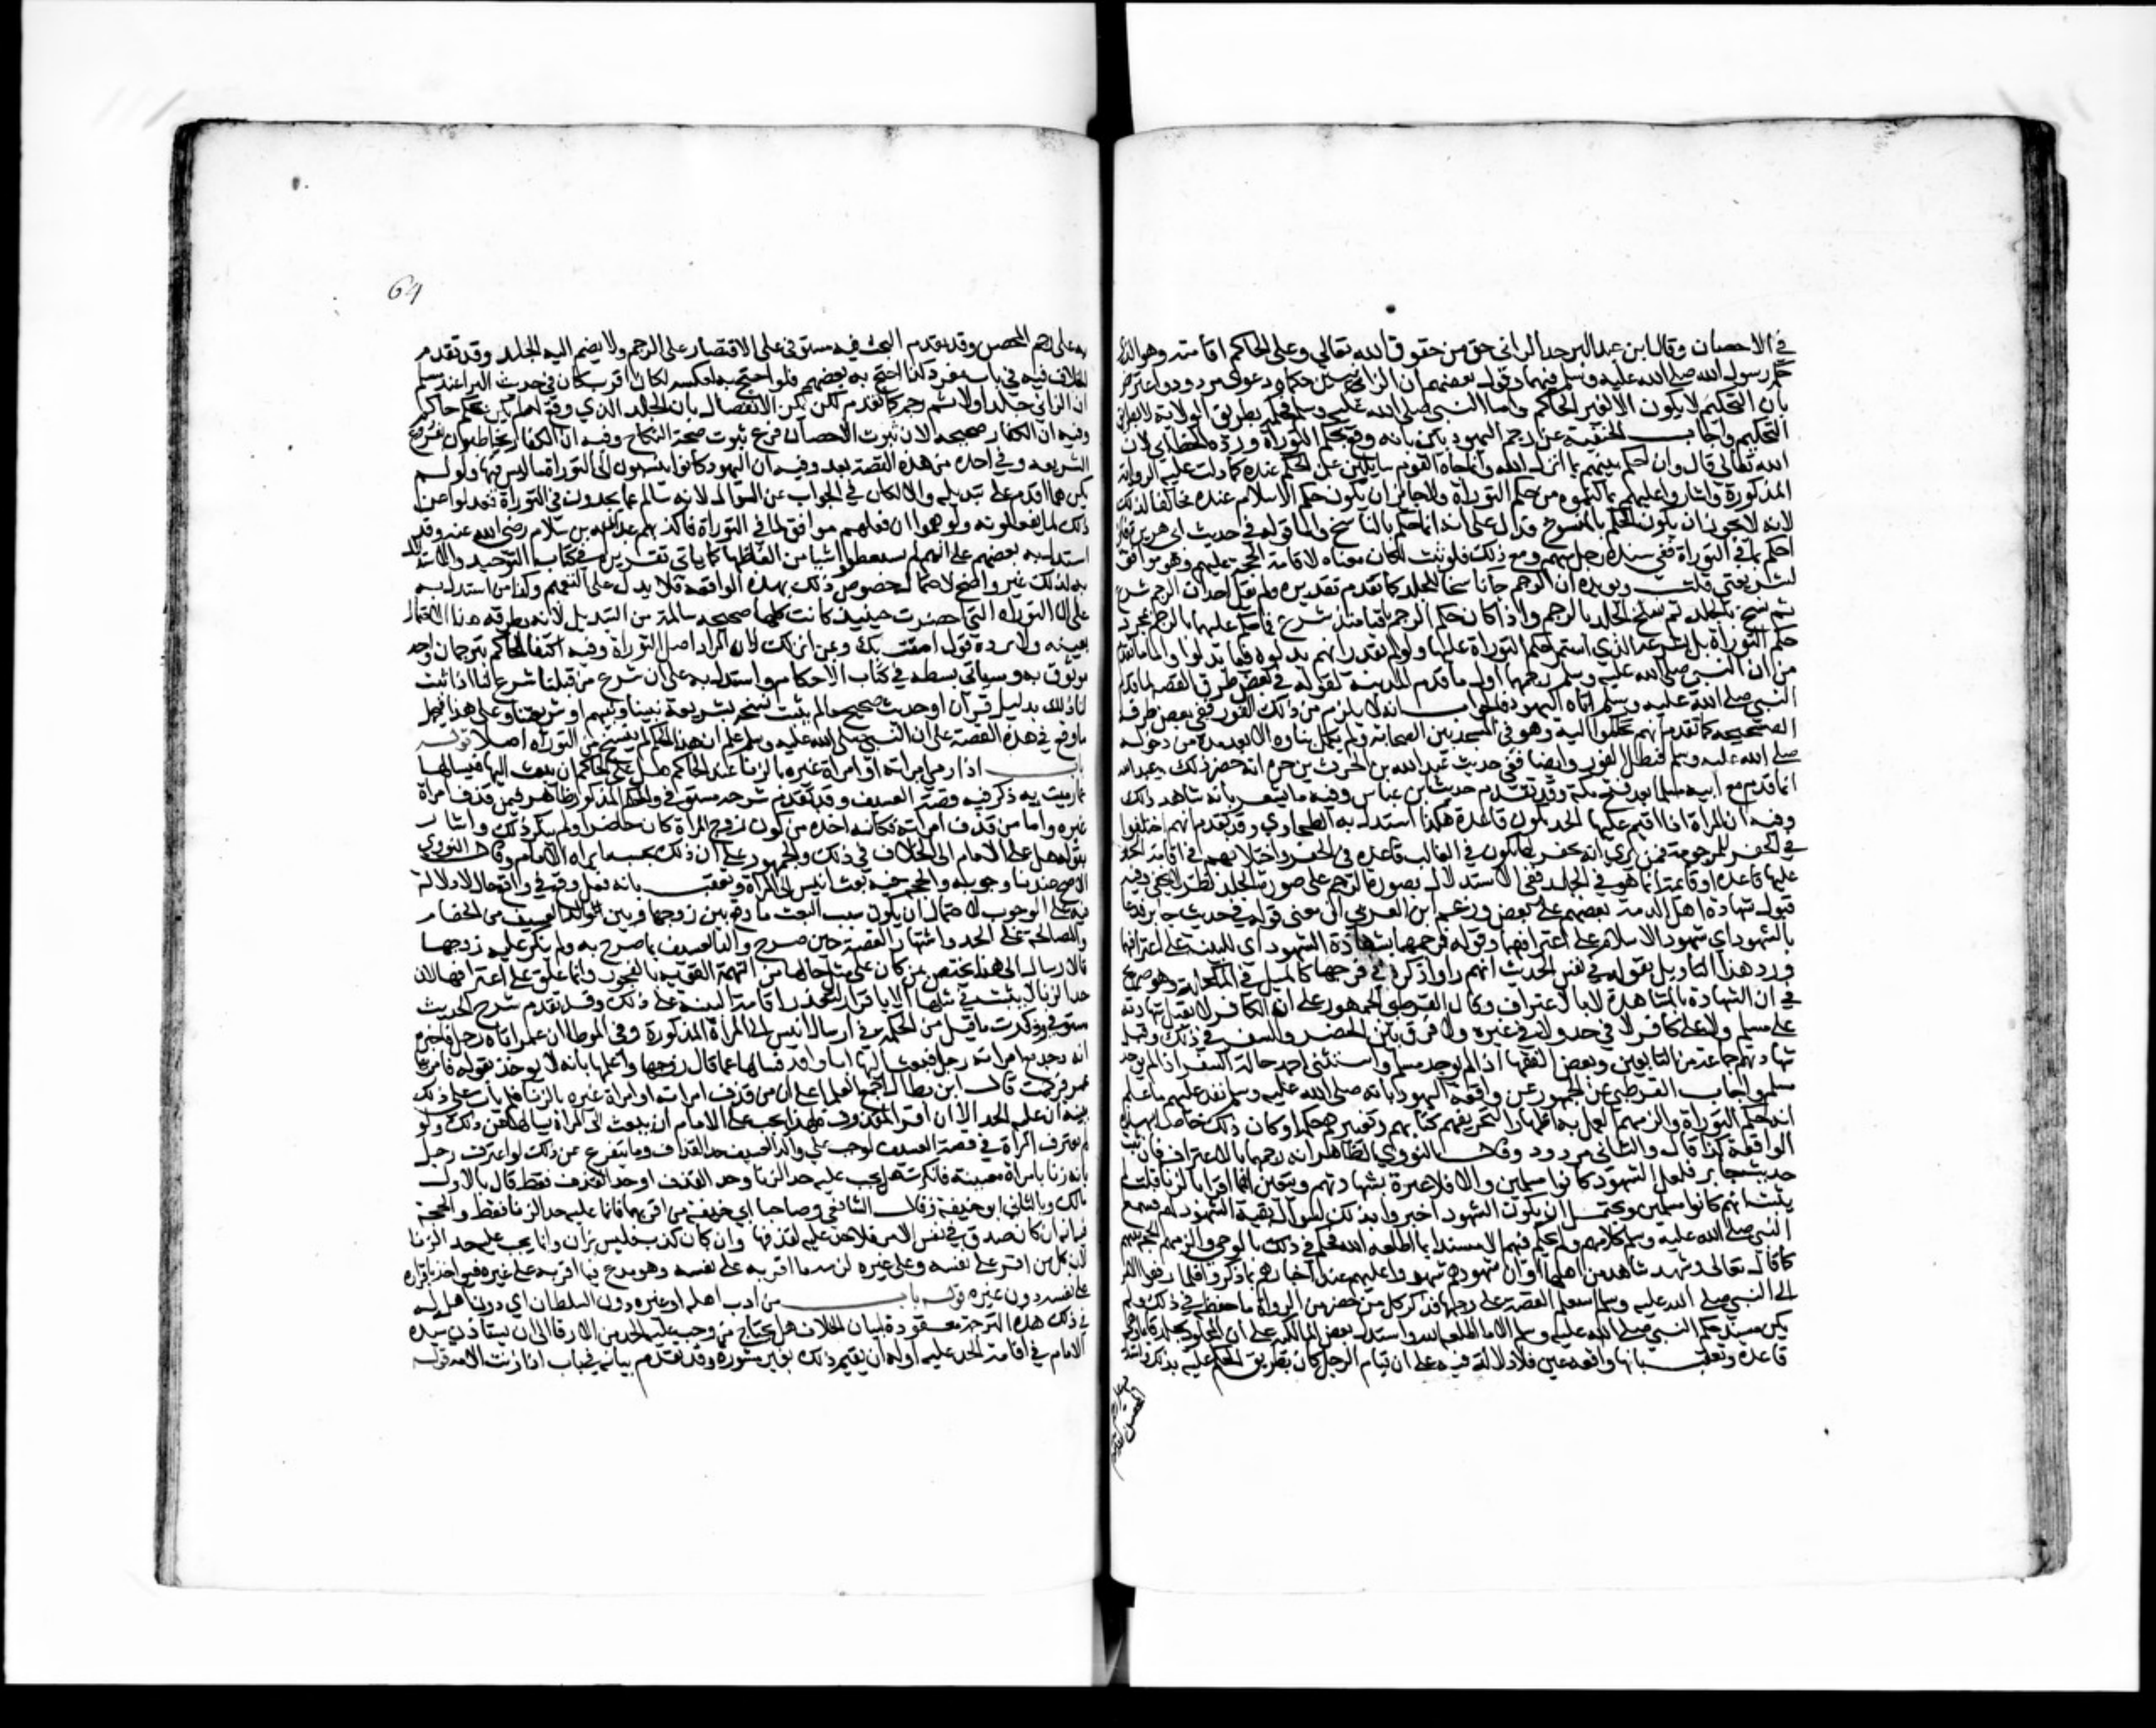 في الاحصان وقال ابن عبد البر حد الزاني حق من حقوق الله تعالي وعلي الحاكم اقامته وهو الذي
حكم رسول الله صلى الله عليه وسلم فيهما وقول بعضهم ان الزانيين حكماه دعوى مردود واعترض
بان التحكيم لا يكون الا لغير الحاكم واما النبي صلى الله عليه وسلم فحكم بطريق الولاية لا بطريق
التحكيم واجاب الحنفية عن رجم اليهوديين بانه وقع بحكم التوراة ورده الخطابي لان
الله تعالي قال وان احكم بينهم بما انزل الله وانما جاه القوم سايلين عن الحكم عنده كما دلت عليه الرواية
المذكورة واشار واعليهم بما كتموه من حكم التوراة ولا جايز ان يكون حكم الاسلام عنده مخالفا لذلك
لانه لا يجوز ان يكون الحكم بالمنسوخ فدل على انه انما حكم بالناسخ واما قوله في حديث ابي هريرة فاني
احكم بما في التوراة ففي سنده رجل مبهم ومع ذلك فلو ثبت لكان معناه لاقامة الحجة عليهم وهو موافق
لشريعتي قلت ويويده ان الرجم جا ناسخا للجلد كما تقدم تقديره ولم يقل احد ان الرجم شرع
ثم نسخ بالجلد ثم نسخ الجلد بالرجم واذا كان حكم الرجم باقيا منذ شرع فما حكم عليهما بالرجم بمجرد
حكم التوراة بل بشرعه الذي استمر حكم التوراة عليها ولم يقدر انهم بدلوه فيما بدلوا واما ما تقدم
من ان النبي صلى الله عليه وسلم رجمهما اول ما قدم المدينة لقوله في بعض طرق القصة لما قدم
النبي صلى الله عليه وسلم اتاه اليهود فالجواب انه لا يلزم من ذلك الفور ففي بعض طرقه
الصحيحة كما تقدم انهم تحاكموا اليه وهو في المسجد بين اصحابه ولم يكمل بناوه الا بعد مدة من دخوله
صلى الله عليه وسلم فبطل الفور وايضا ففي حديث عبد الله بن الحرث بن جزء انه حضر ذلك وعبد الله
انما قدم مع ابيه مسلما بعد فتح مكة وقد تقدم حديث ابن عباس وفيه ما يشعر بانه شاهد ذلك
وفيه ان المراة اذا اقيم عليها الحد تكون قاعدة هكذا استدل به الطحاوي وقد تقدم انهم اختلفوا
في الحفر للمرجومة فمن يرى انه يحفر لها تكون في الغالب قاعدة في الحفر واختلافهم في اقامة الحد
عليها قاعدة او قايمة انما هو في الجلد ففي الاستدلال بصورة الرجم على صورة الجلد نظر لا يخفى وفيه
قبول شهادة اهل الذمة بعضهم على بعض وزعم ابن العربي ان معنى قوله في حديث جابر فدعا
بالشهود اي شهود الاسلام على اعترافهما وقوله فرجمهما بشهادة الشهود اي البينة على اعترافهما
ورد هذا التاويل بقوله في نفس الحديث انهم راوا ذكره في فرجها كالميل في المكحلة وهو صريح
في ان الشهادة بالمشاهدة لا بالاعتراف وقال القرطبي الجمهور على ان الكافر لا تقبل شهادته
على مسلم ولا على كافر لا في حد ولا في غيره ولا فرق بين الحضر والسفر في ذلك وقبل
شهادتهم جماعة من التابعين وبعض الفقها اذا لم يوجد مسلم واستثنى احمد حالة السفر اذا لم يوجد
مسلم واجاب القرطبي عن الجمهور عن واقعة اليهود بانه صلى الله عليه وسلم نفذ عليهم ما علم
انه حكم التوراة والزمهم العمل به اظهارا لتحريفهم كتابهم وتغييرهم حكمه او كان ذلك خاصا بهذه
الواقعة كذا قال والثاني مردود وقال النووي الظاهر انه رجمهما بالاعتراف فان ثبت
حديث جابر فلعل الشهود كانوا مسلمين والا فلا عبرة بشهادتهم ويتعين انهما اقرا بالزنا قلت لم
يثبت انهم كانوا مسلمين ويحتمل ان يكون الشهود اخبروا بذلك لسوال بقية اليهود لهم فسمع
النبي صلى الله عليه وسلم كلامهم ولم يحكم فيهم الا مستندا لما اطلعه الله فحكم في ذلك بالوحي والزمهم الحجة بينهم
كما قال تعالى وشهد شاهد من اهلها وان شهودهم شهدوا عليهم عند احبارهم بما ذكر وا فلما رفعوا الامر
الى النبي صلى الله عليه وسلم استعلم القصة على وجهها فذكر كل من حضره من الرواة ما حفظه في ذلك ولم
يكن مستند حكم النبي صلى الله عليه وسلم الا ما اطلعه الله واستدل بعض المالكية على ان المجلود يجلد قايما
قاعدة وتعقب بانها واقعة عين فلا دلالة فيه على ان قيام الرجل كان بطريق الحكم عليه بذلك واستدل
به على رجم
المحصن وقد تقدم
64
به على رجم المحصن وقد تقدم البحث فيه مستوفى على الاقتصار على الرجم ولا يضم اليه الجلد وقد تقدم
الخلاف فيه في باب مفرد كذا احتج به بعضهم فلو احتج به لعكسه لكان اقرب لان في حديث البرا عند مسلم
ان الزاني جلد اولا ثم رجم كما تقدم لكن يمكن الانفصال بان الجلد الذي وقع له لم يكن بحكم حاكم
وفيه ان الكفار صحيحة لان ثبوت الاحصان فرع ثبوت صحة النكاح وفيه ان الكفار مخاطبون بفروع
الشريعة وفي اخذه من هذه القصة بعد وفيه ان اليهود كانوا ينسبون الى التوراة ما ليس فيها ولو لم
يكن مما اقدم على تبديله والا لكان في الجواب عن السوال لانه سالهم عما يجدون في التوراة فعدلوا عن
ذلك لما يفعلونه واوهموا ان فعلهم موافق لما في التوراة فاكذبهم عبد الله بن سلام رضي الله عنه وقد
استدل به بعضهم على انهم لم يسقطوا شيا من الفاظها كما ياتي تقريره في كتاب التوحيد والاستدلال
به لذلك غير واضح لاحتمال خصوص ذلك بهذه الواقعة فلا يدل على التعميم وكذا من استدل به
على ان التوراة التي احضرت حينيذ كانت كلها صحيحة سالمة من التبديل لانه يطرقه هذا الاحتمال
بعينه ولا يرده قوله امنت بك وعن انزلك لان المراد اصل التوراة وفيه اكتفا الحاكم بترجمان واحد
موثوق به وسياتي بسطه في كتاب الاحكام واستدل به على ان شرع من قبلنا شرع لنا اذا ثبت
لنا ذلك بدليل قران او حديث صحيح ما لم يثبت نسخه بشريعة نبينا او نبيهم او شريعتنا وعلى هذا فيحمل
ما وقع في هذه القصة على ان النبي صلى الله عليه وسلم علم ان هذا الحكم لم ينسخ من التوراة اصلا قوله
باب اذا رمى امراته او امراة غيره بالزنا عند الحاكم هل على الحاكم ان يبعث اليها فيسالها
عما رميت به ذكر فيه قصة العسيف وقد تقدم شرحه مستوفى والحكم المذكور ظاهر فيمن قذف امراة
غيره واما من قذف امراته فكانه اخذه من كون زوج المراة كان حاضرا ولم ينكر ذلك واشار
بقوله هل على الامام الى الخلاف في ذلك والجمهور على ان ذلك بحسب ما يراه الامام وقال النووي
الاصح عندنا وجوبه والحجة فيه بعث انيس الى المراة وتعقب بانه فعل وقع في واقعة حال لا دلالة
فيه على الوجوب لاحتمال ان يكون سبب البعث ما وقع بين زوجها وبين والد العسيف من الخصام
والمصالحة على الحد واشتهار القصة حتى صرح والد العسيف بما صرح به ولم ينكر عليه زوجها
فالارسال الى هذه يختص بمن كان على مثل حالها من التهمة القوية بالفجور وانما علق على اعترافها لان
حد الزنا لا يثبت في مثلها الا بالاقرار لتعذر اقامة البينة على ذلك وقد تقدم شرح الحديث
مستوفى وذكرت ما قيل من الحكمة في ارسال انيس الى المراة المذكورة وفي الموطا ان عمر اتاه رجل فاخبره
انه وجد مع امراته رجلا فبعث اليها ابا واقد فسالها عما قال زوجها واعلمها بانه لا يوخذ بقوله فاعترفت
فامر بها عمر فرجمت قال ابن بطال اجمع العلما على ان من قذف امراته او امراة غيره بالزنا فلم يات على ذلك
بينة ان عليه الحد الا ان اقر المقذوف فلهذا يجب على الامام ان يبعث الى المراة يسالها عن ذلك ولو
لم تعترف المراة في قصة العسيف لوجب على والد العسيف حد القذف ومما يتفرع عن ذلك لو اعترف رجل
بانه زنا بامراة معينة فانكرت هل يجب عليه حد الزنا وحد القذف او حد القذف فقط قال بالاول
مالك وبالثاني ابو حنيفة وقال الشافعي وصاحبا ابي حنيفة من اقر بهما فانما عليه حد الزنا فقط والحجة
فيه انه ان كان صدق في نفس الامر فلا حد عليه لقذفها وان كان كذب فليس بزان وانما يجب عليه حد الزنا
لان كل من اقر على نفسه وعلى غيره لزمه ما اقر به على نفسه وهو مدع فيما اقر به على غيره فيواخذ باقراره
على نفسه دون غيره قوله باب من ادب اهله او غيره دون السلطان اي دون اذنه له
في ذلك هذه الترجمة معقودة لبيان الخلاف هل يحتاج من وجب عليه الحد من الارقا الى ان يستاذن سيده
الامام في اقامة الحد عليه او له ان يقيم ذلك بغير مشورة وقد تقدم بيانه في باب اذا زنت الامة قوله